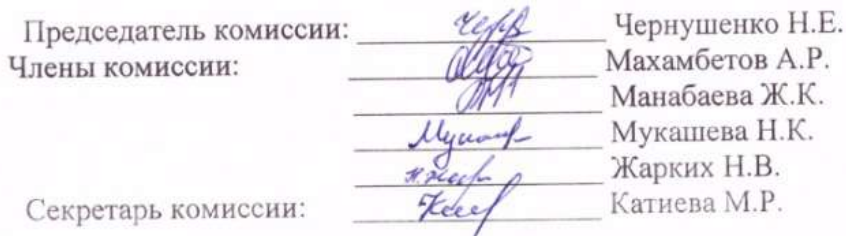 Председатель комиссии: Чернушенко Н.Е.
Члены комиссии: Махамбетов А.Р.
Манабаева Ж.К.
Мукашева Н.К.
Жарких Н.В.
Секретарь комиссии: Катиева М.Р.